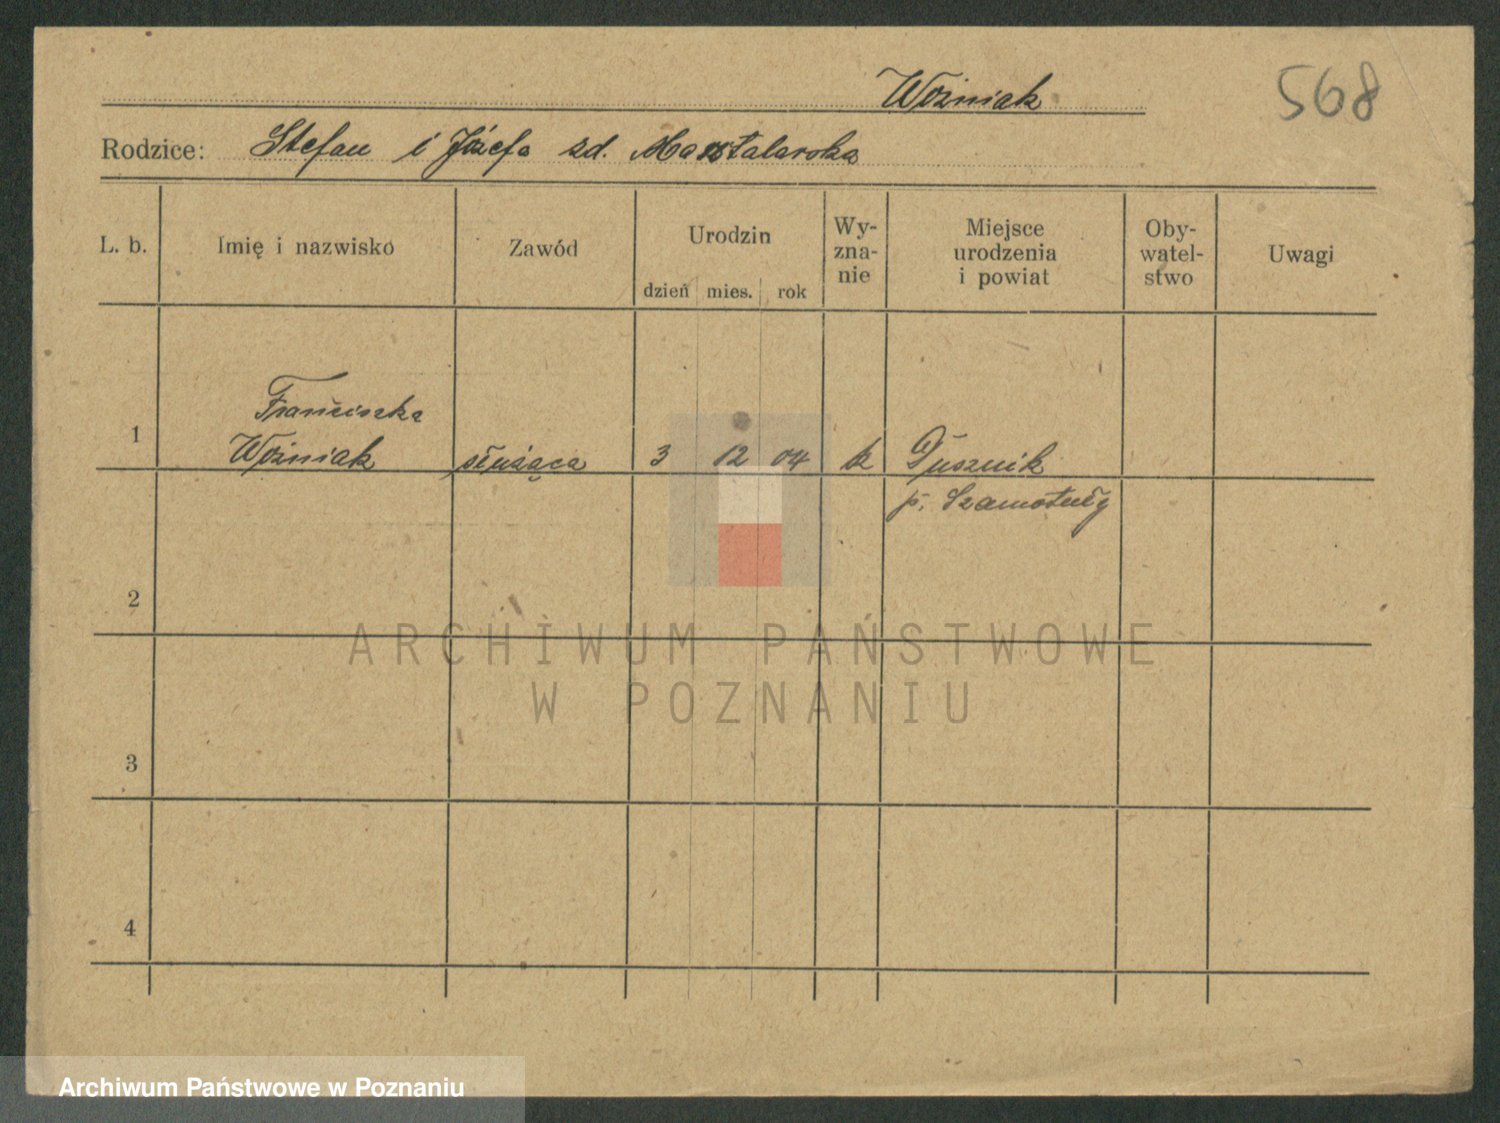 Woźniak
568
Rodzice: Stefan i Józefa zd. Masztalarska
L. b.
Imię i nazwisko
Zawód
Urodzin
dzień mies. rok
Wy-
zna-
nie
Miejsce
urodzenia
i powiat
Oby-
watel-
stwo
Uwagi
1
Franciszka
Woźniak
służąca
3
12
04
k
Dusznik
p. Szamotuły
2
3
4
ARCHIWUM PAŃSTWOWE
W POZNANIU
Archiwum Państwowe w Poznaniu